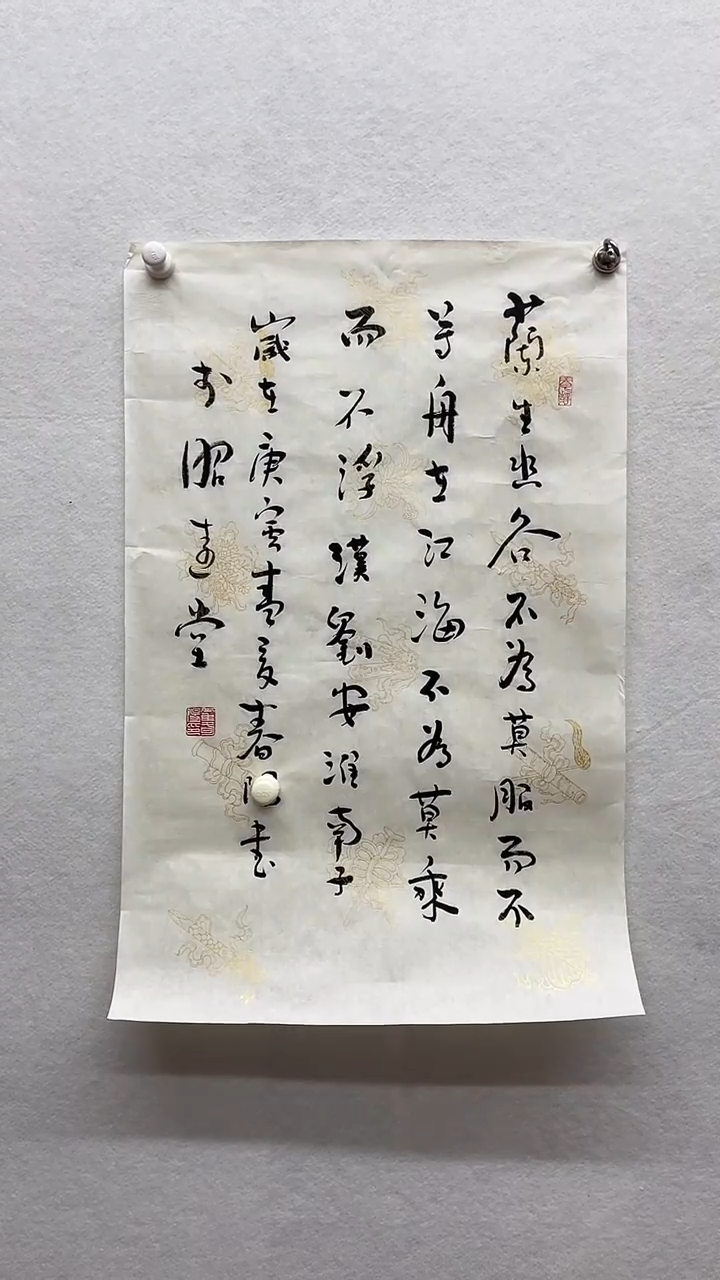 蘭生幽谷不為莫服而不
芳舟在江海不為莫乘
而不浮漢劉安淮南子
歲在庚寅青夏春陽書
於昭遠堂